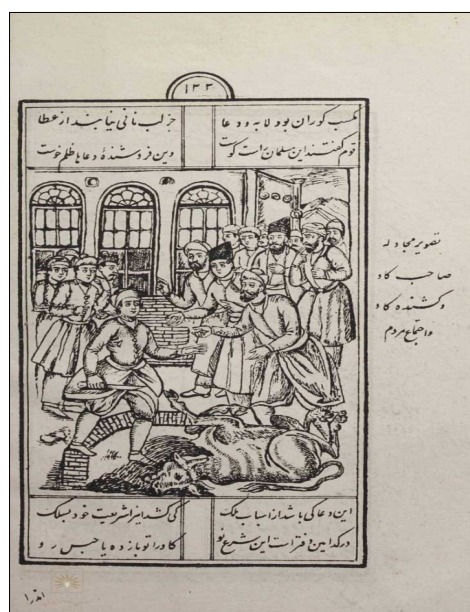 مکسب کوران بود لابه و دعا جز لب نانی نیابند از عطا
قوم گفتند این مسلمان راست گوست وین فروشندهٔ دعاها ظلم جوست
تصویر مجادله
صاحب گاو
و کشنده گاو
و اجتماع مردم
این دعا کی باشد از اسباب ملک کی کشد اینرا شریعت خود بسلک
در کدامین دفتر است این شرع نو گاو را تو باز ده یا حبس رو